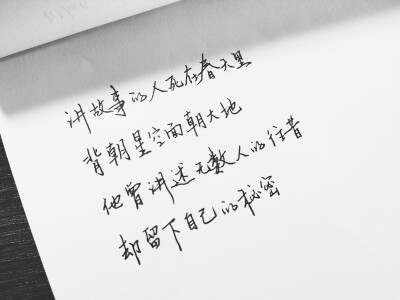 讲故事的人死在春天里
背朝星空面朝大地
他曾讲述无数人的往昔
却留下自己的秘密